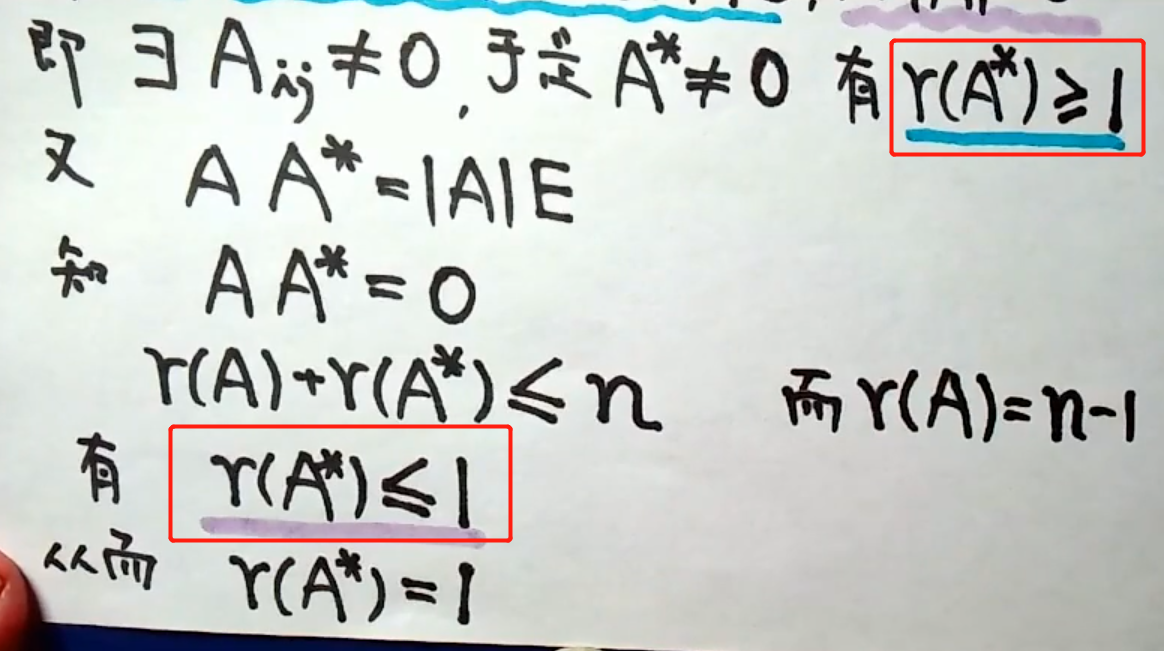 即 ∃ Aij ≠ 0, 于是 A* ≠ 0 有 r(A*) ≥ 1
又 A A* = |A| E
知 A A* = 0
r(A) + r(A*) ≤ n 而 r(A) = n-1
有 r(A*) ≤ 1
从而 r(A*) = 1